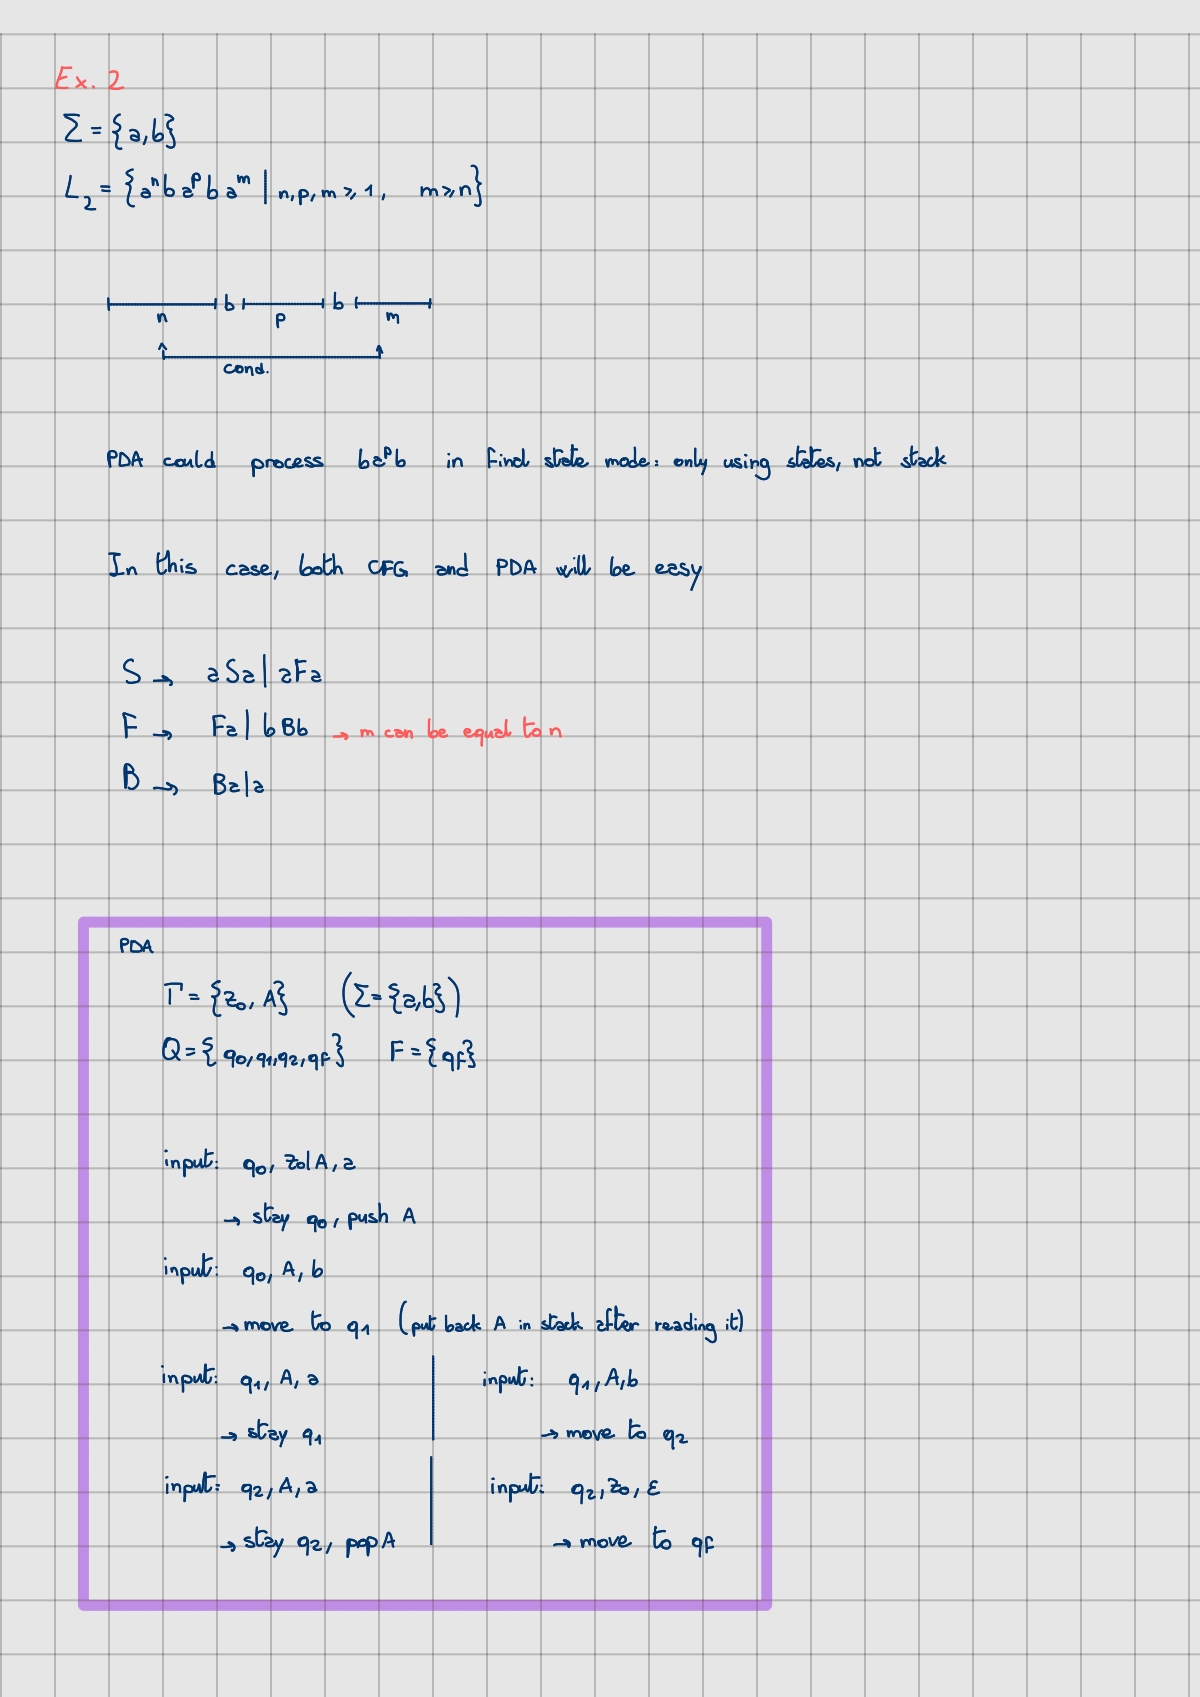 Ex. 2
Σ = {a,b}
L₂ = {aⁿ b aᵖ b aᵐ | n,p,m ⩾ 1, m ⩾ n}
b b
n p m
cond.
PDA could process baᵖb in find state mode: only using states, not stack
In this case, both CFG and PDA will be easy
S → aSa | aFa
F → Fa | bBb → m can be equal to n
B → Ba | a
PDA
Γ = {z₀, A} (Σ = {a,b})
Q = {q₀, q₁, q₂, qf} F = {qf}
input: q₀, z₀|A, a
→ stay q₀, push A
input: q₀, A, b
→ move to q₁ (put back A in stack after reading it)
input: q₁, A, a input: q₁, A, b
→ stay q₁ → move to q₂
input: q₂, A, a input: q₂, z₀, ε
→ stay q₂, pop A → move to qf